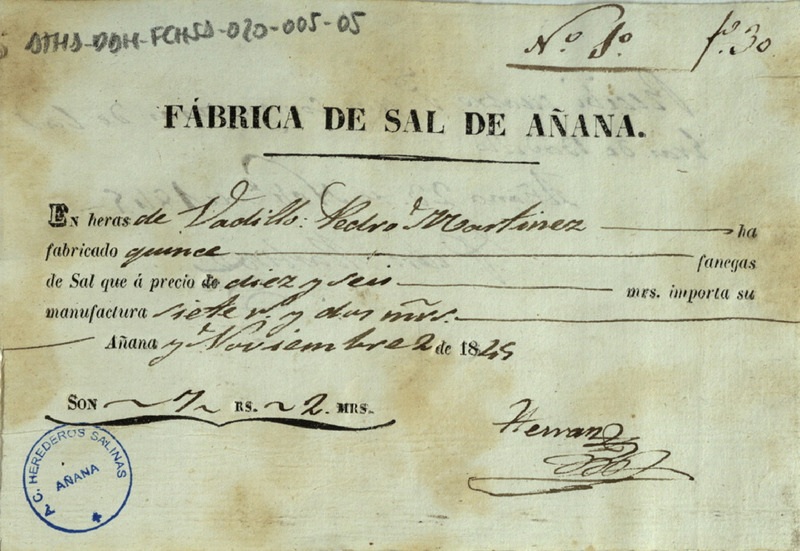 ATHA-DDH-FCHSA-020-005-05
Nº 1º fº 30
FÁBRICA DE SAL DE AÑANA.
EN heras de Vadillo: Pedro Martinez ha
fabricado quince fanegas
de Sal que á precio de diez y seis mrs. importa su
manufactura siete rs. y dos mrs.
Añana y Noviembre 2 de 1845
SON 7 RS. 2 MRS.
Herran
A. C. HEREDEROS SALINAS
AÑANA